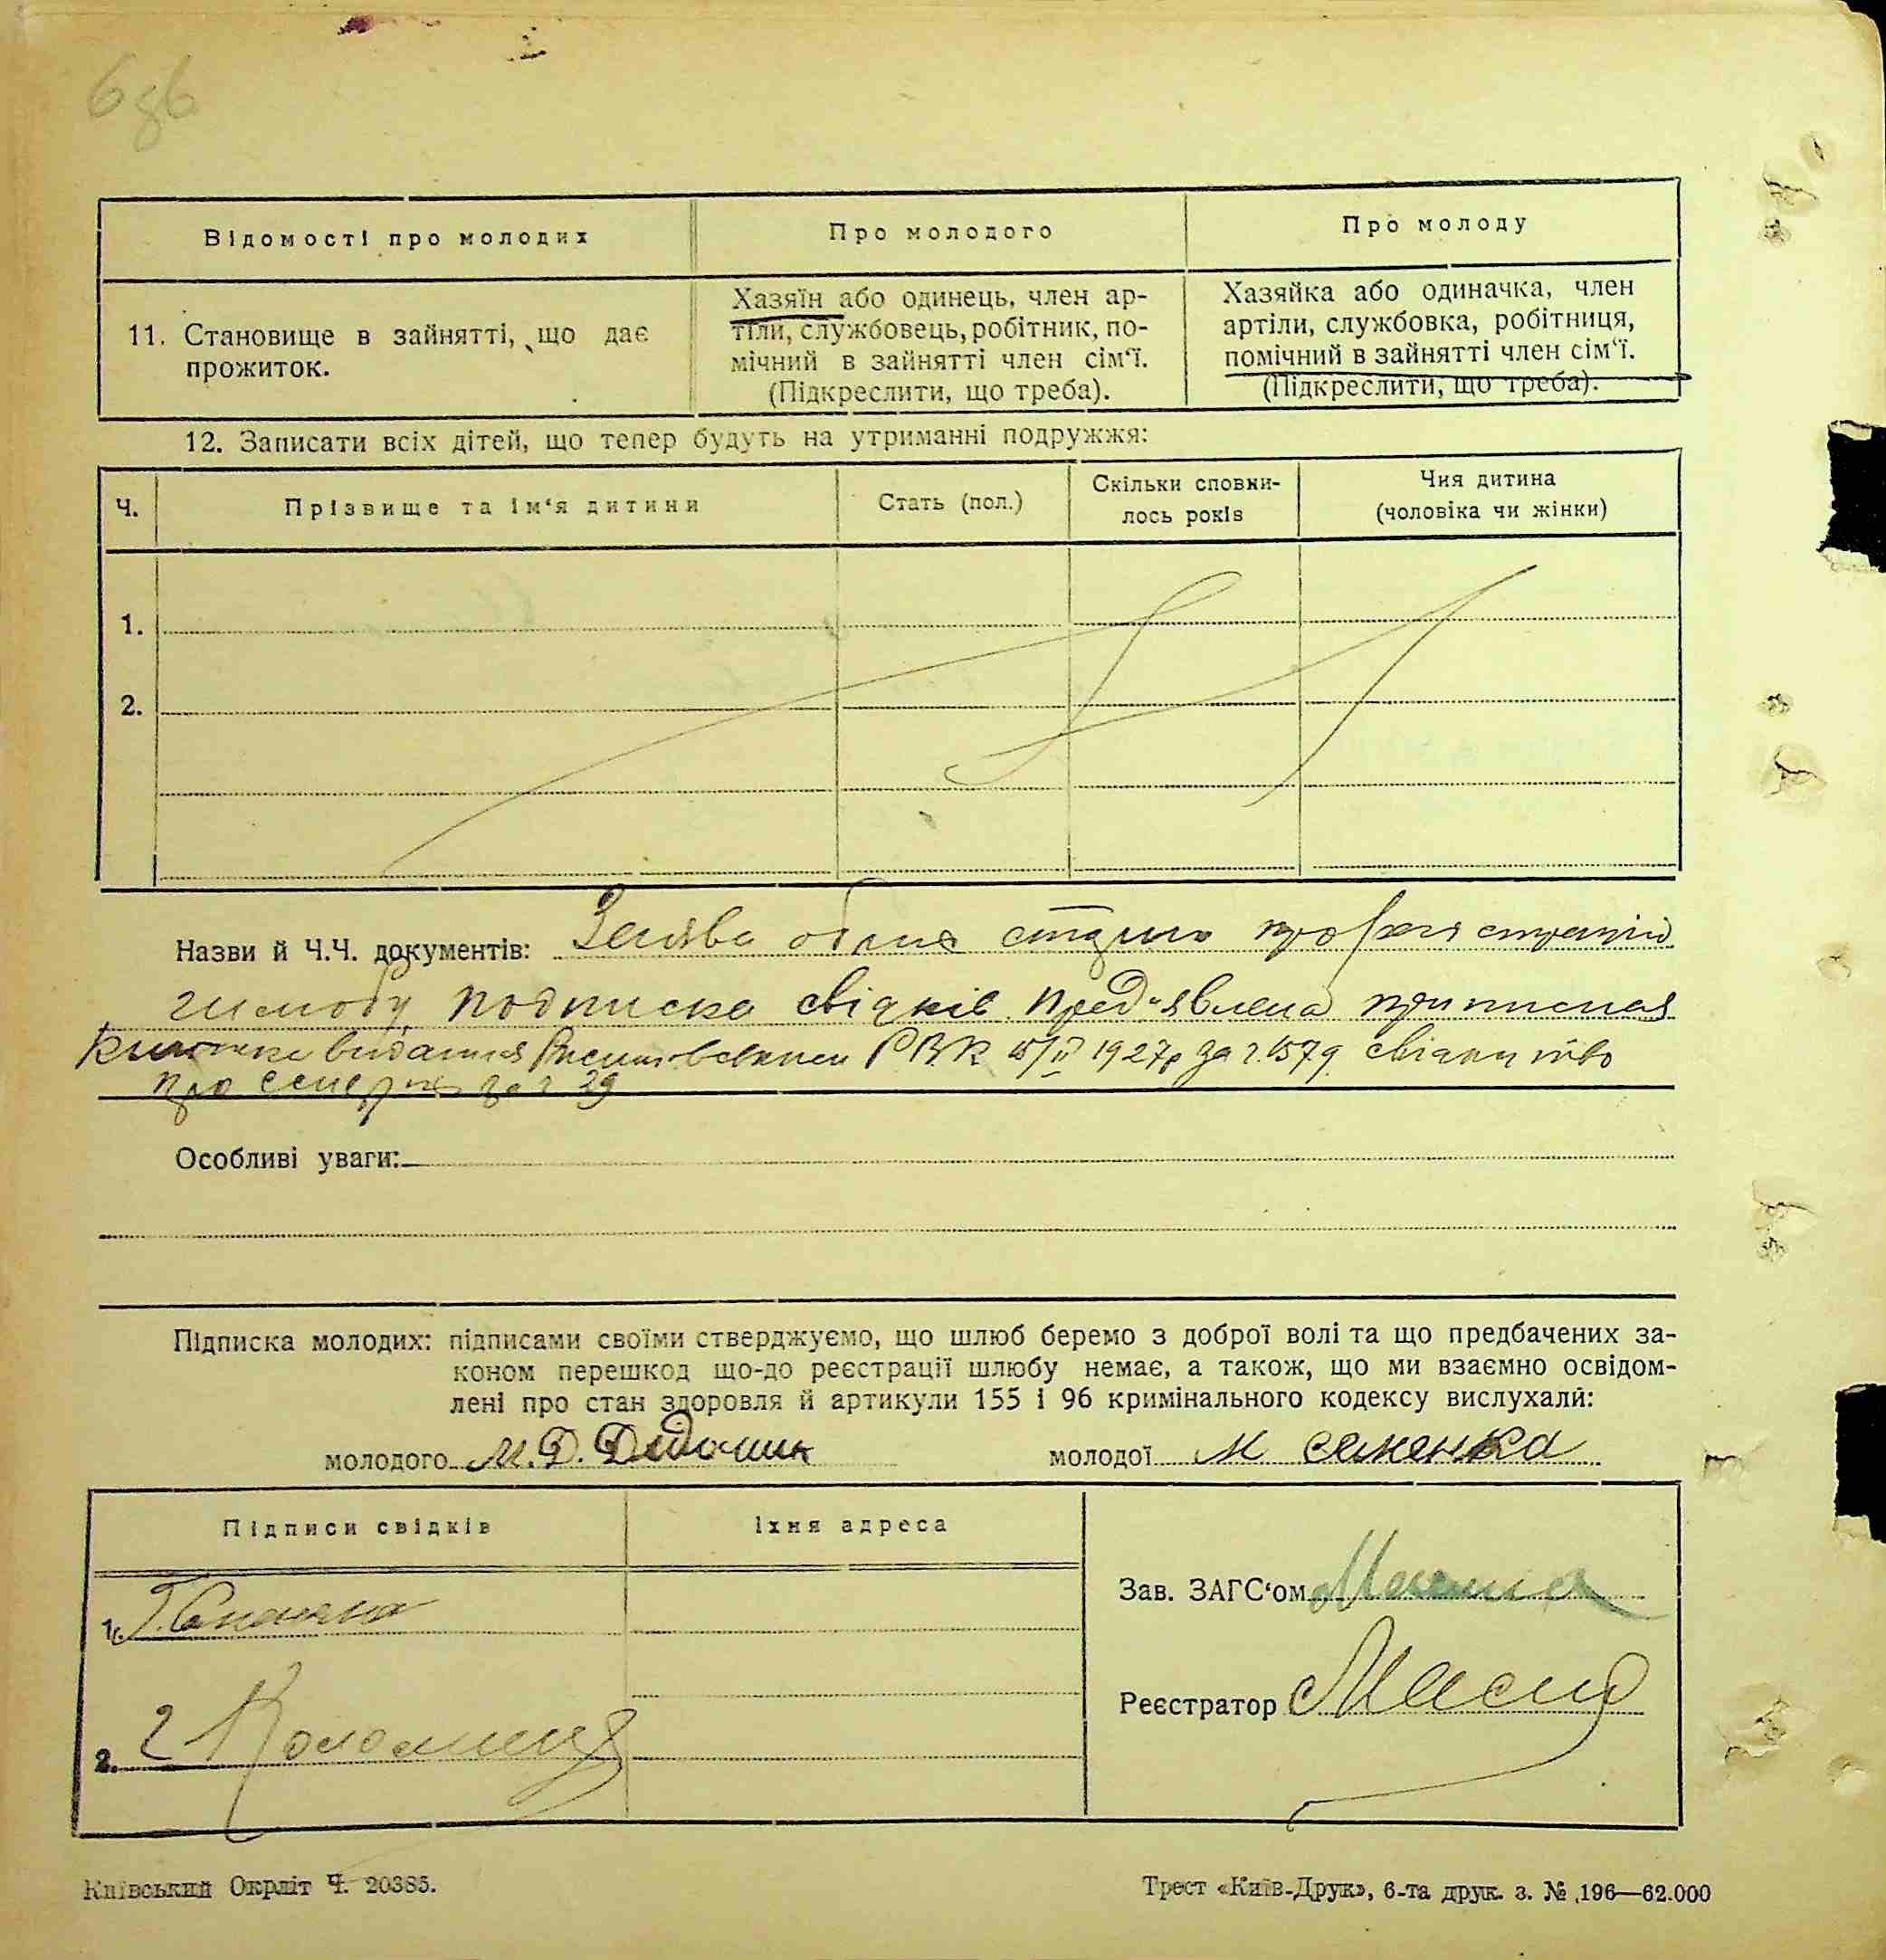 Відомості про молодих
Про молодого
Про молоду
11. Становище в зайнятті, що дає
прожиток.
Хазяїн або одинець, член ар-
тіли, службовець, робітник, по-
мічний в зайнятті член сім'ї.
(Підкреслити, що треба).
Хазяйка або одиначка, член
артіли, службовка, робітниця,
помічний в зайнятті член сім'ї.
(Підкреслити, що треба).
12. Записати всіх дітей, що тепер будуть на утриманні подружжя:
Ч.
Прізвище та ім'я дитини
Стать (пол.)
Скільки сповни-
лось років
Чия дитина
(чоловіка чи жінки)
1.
2.
Назви й Ч.Ч. документів: Заява обоих сторін про регістрацію
шлюбу, подписка свідків. Пред'явлена приписная
книжка видання РВК 15/II 1927р за г. 1579 свідицтво
про за г 39
Особливі уваги:
Підписка молодих: підписами своїми стверджуємо, що шлюб беремо з доброї волі та що предбачених за-
коном перешкод що-до реєстрації шлюбу немає, а також, що ми взаємно освідом-
лені про стан здоровля й артикули 155 і 96 кримінального кодексу вислухали:
молодого М.Д.
молодої М семенка
Підписи свідків
Їхня адреса
1.
2. Коломиец
Зав. ЗАГС'ом
Реєстратор
Київський Окрліт Ч. 20385.
Трест «Київ-Друк», 6-та друк. з. № 196—62.000